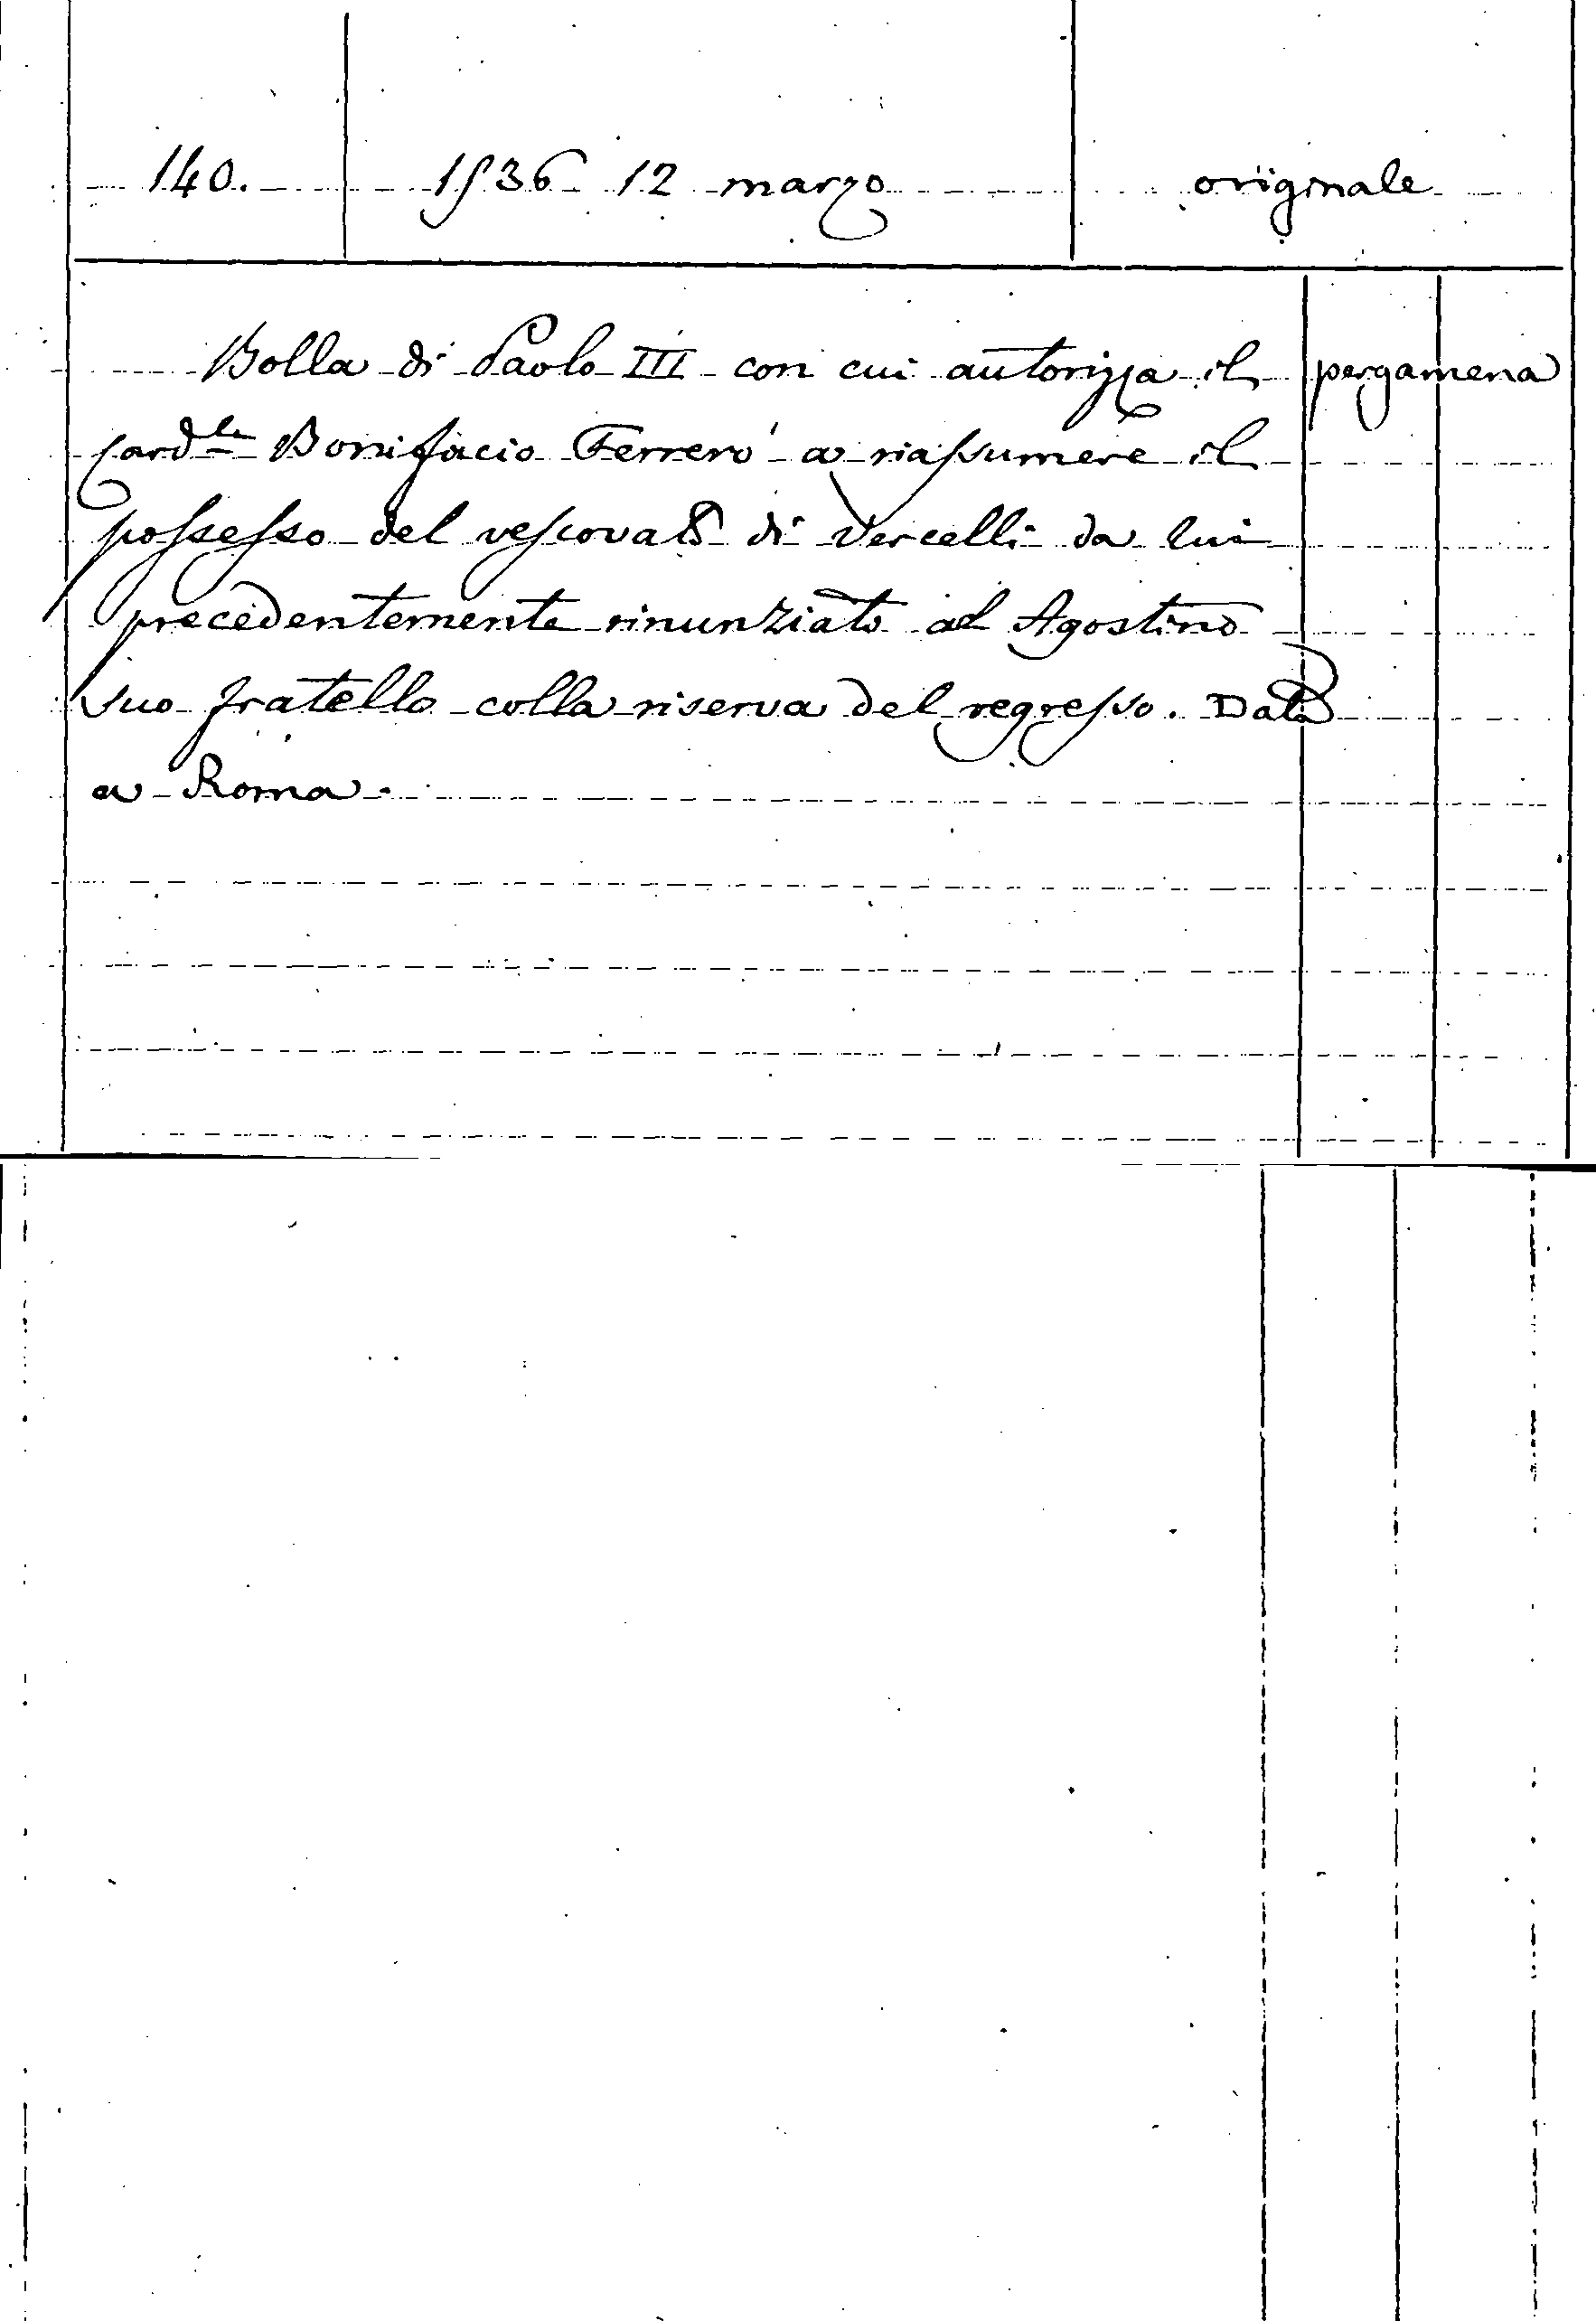 140. 1536 12 marzo originale
Bolla di Paolo III con cui autorizza il pergamena
Card.le Bonifacio Ferrero a riassumere il
possesso del vescovato di Vercelli da lui
precedentemente rinunziato ad Agostino
suo fratello colla riserva del regresso. Data
a Roma.